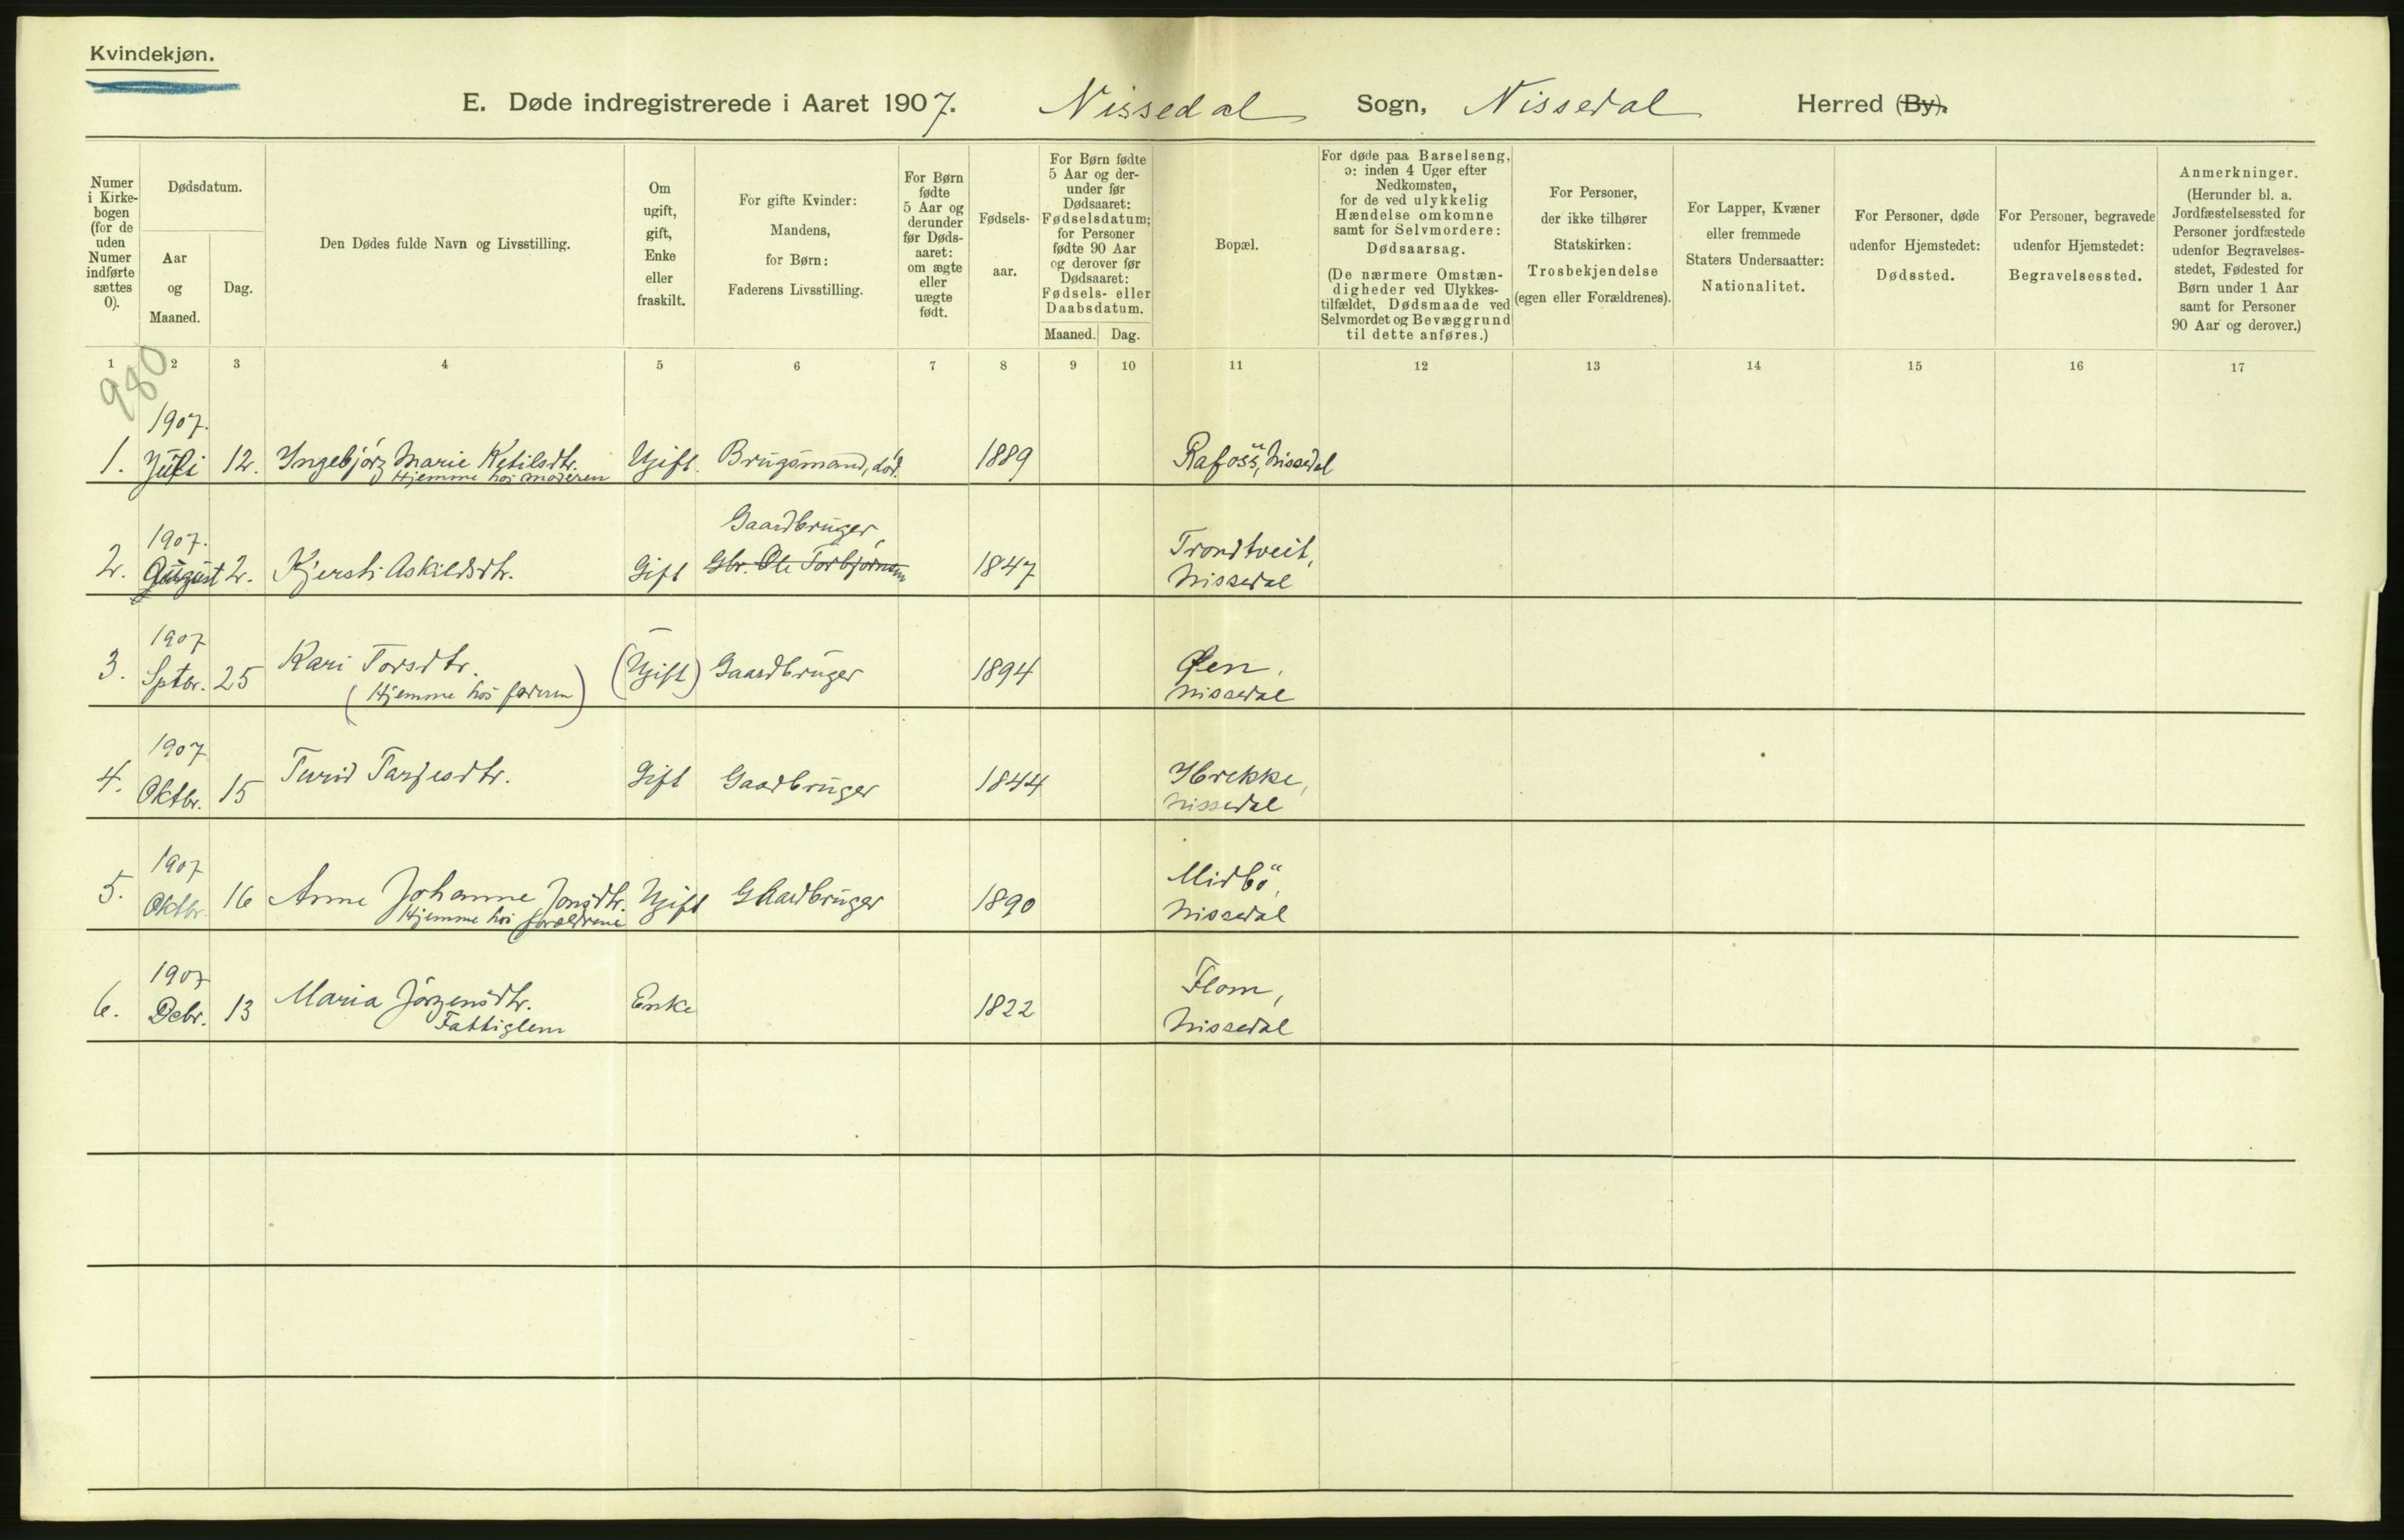 Kvindekjøn.
E. Døde indregistrerede i Aaret 1907. Nissedal Sogn, Nissedal Herred (By).
Numer i Kirkebogen (for de uden Numer indførte sættes 0).
Dødsdatum.
Aar og Maaned.
Dag.
Den Dødes fulde Navn og Livsstilling.
Om ugift, gift, Enke eller fraskilt.
For gifte Kvinder: Mandens, for Børn: Faderens Livsstilling.
For Børn fødte 5 Aar og derunder før Dødsaaret: om ægte eller uægte født.
Fødselsaar.
For Børn fødte 5 Aar og derunder før Dødsaaret: Fødselsdatum; for Personer fødte 90 Aar og derover før Dødsaaret: Fødsels- eller Daabsdatum.
Maaned. Dag.
Bopæl.
For døde paa Barselseng, ɔ: inden 4 Uger efter Nedkomsten, for de ved ulykkelig Hændelse omkomne samt for Selvmordere: Dødsaarsag.
(De nærmere Omstændigheder ved Ulykkestilfældet, Dødsmaade ved Selvmordet og Bevæggrund til dette anføres.)
For Personer, der ikke tilhører Statskirken: Trosbekjendelse (egen eller Forældrenes).
For Lapper, Kvæner eller fremmede Staters Undersaatter: Nationalitet.
For Personer, døde udenfor Hjemstedet: Dødssted.
For Personer, begravede udenfor Hjemstedet: Begravelsessted.
Anmerkninger.
(Herunder bl. a. Jordfæstelsessted for Personer jordfæstede udenfor Begravelsesstedet, Fødested for Børn under 1 Aar samt for Personer 90 Aar og derover.)
1 2 3 4 5 6 7 8 9 10 11 12 13 14 15 16 17
980
1907.
1. Juli 12. Ingebjörg Marie Ketilsdtr. Ugift. Brugsmand, död. 1889 Rafoss, Nissedal
Hjemme hos moderen
1907. Gaardbruger, Trondtveit,
2. August 2. Kjersti Askildsdtr. Gift Gbr. Ole Torbjörnsen 1847 Nissedal
1907
3. Sptbr. 25 Kari Torsdtr. (Ugift) Gaardbruger 1894 Øen,
(Hjemme hos faderen) Nissedal
1907
4. Oktbr. 15 Turid Tarjesdtr. Gift Gaardbruger 1844 Hbrekke,
Nissedal
1907 Midbö,
5. Oktbr. 16 Anne Johanne Jonsdtr. Ugift Gaardbruger 1890 Nissedal
Hjemme hos forældrene
1907 Flom,
6. Debr. 13 Maria Jörgensdtr. Enke 1822 Nissedal
Fattiglem